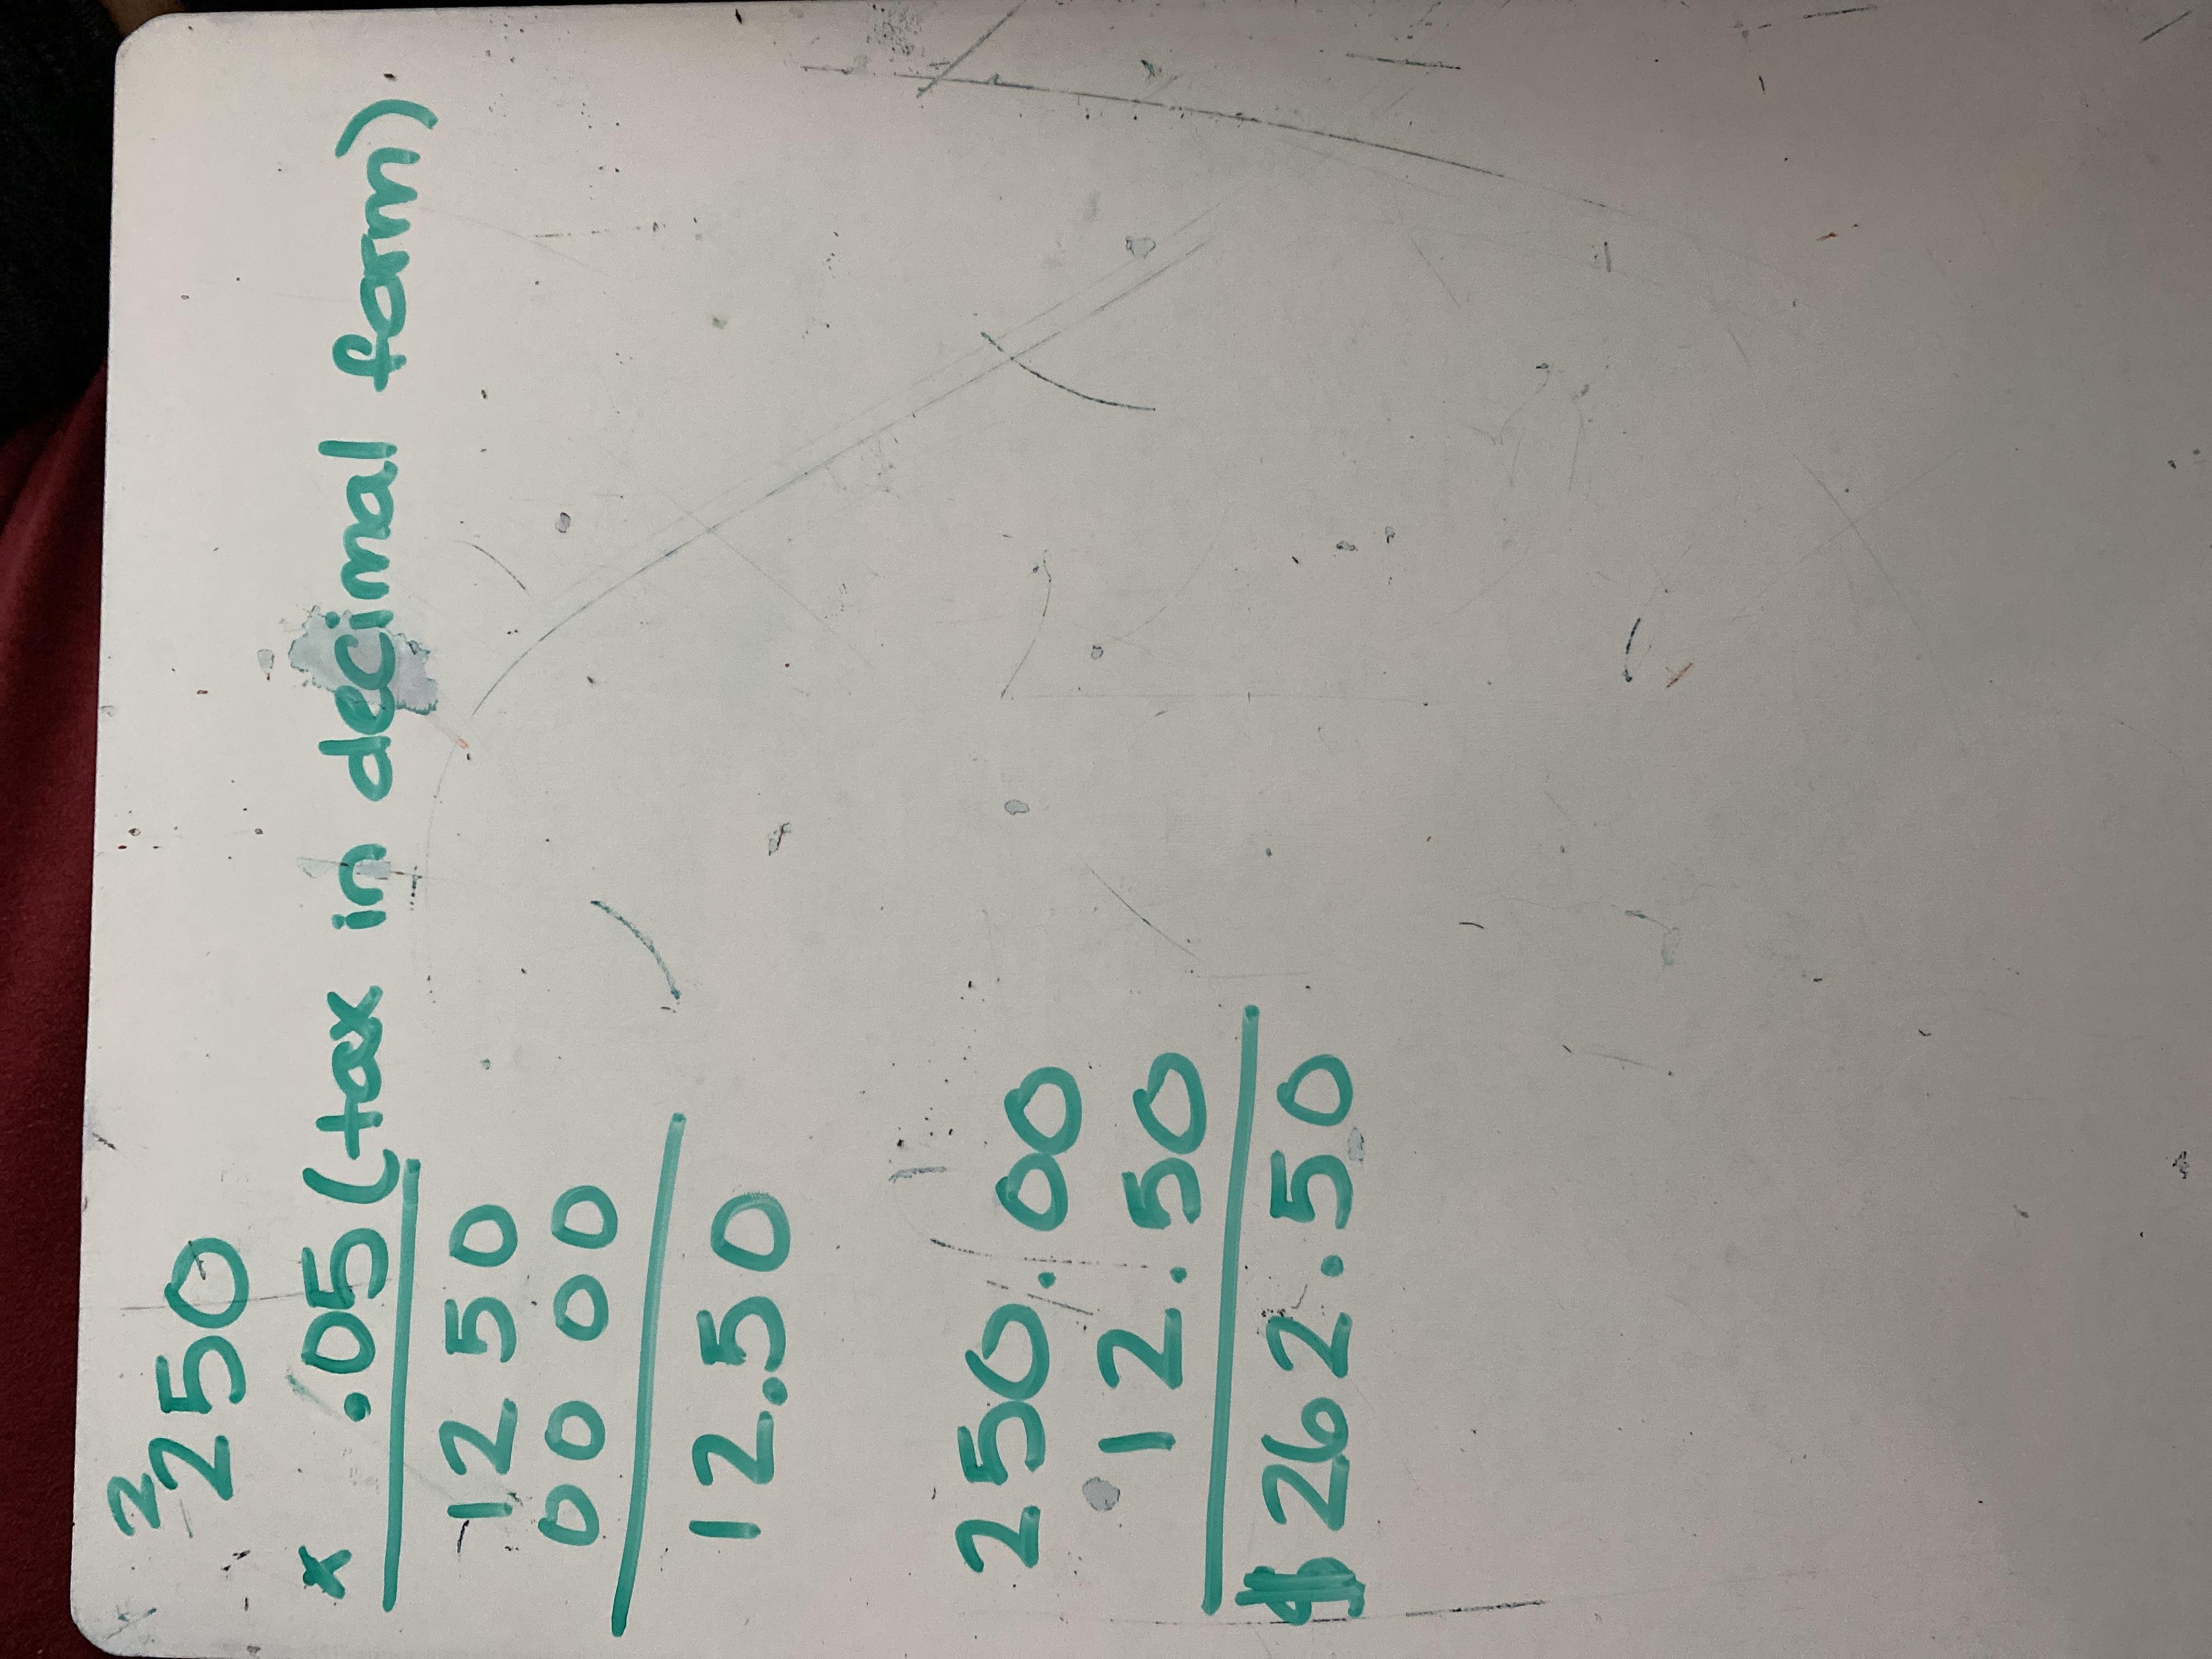 2
250
x .05 (tax in decimal form)
1250
0000
12.50
250.00
12.50
$262.50